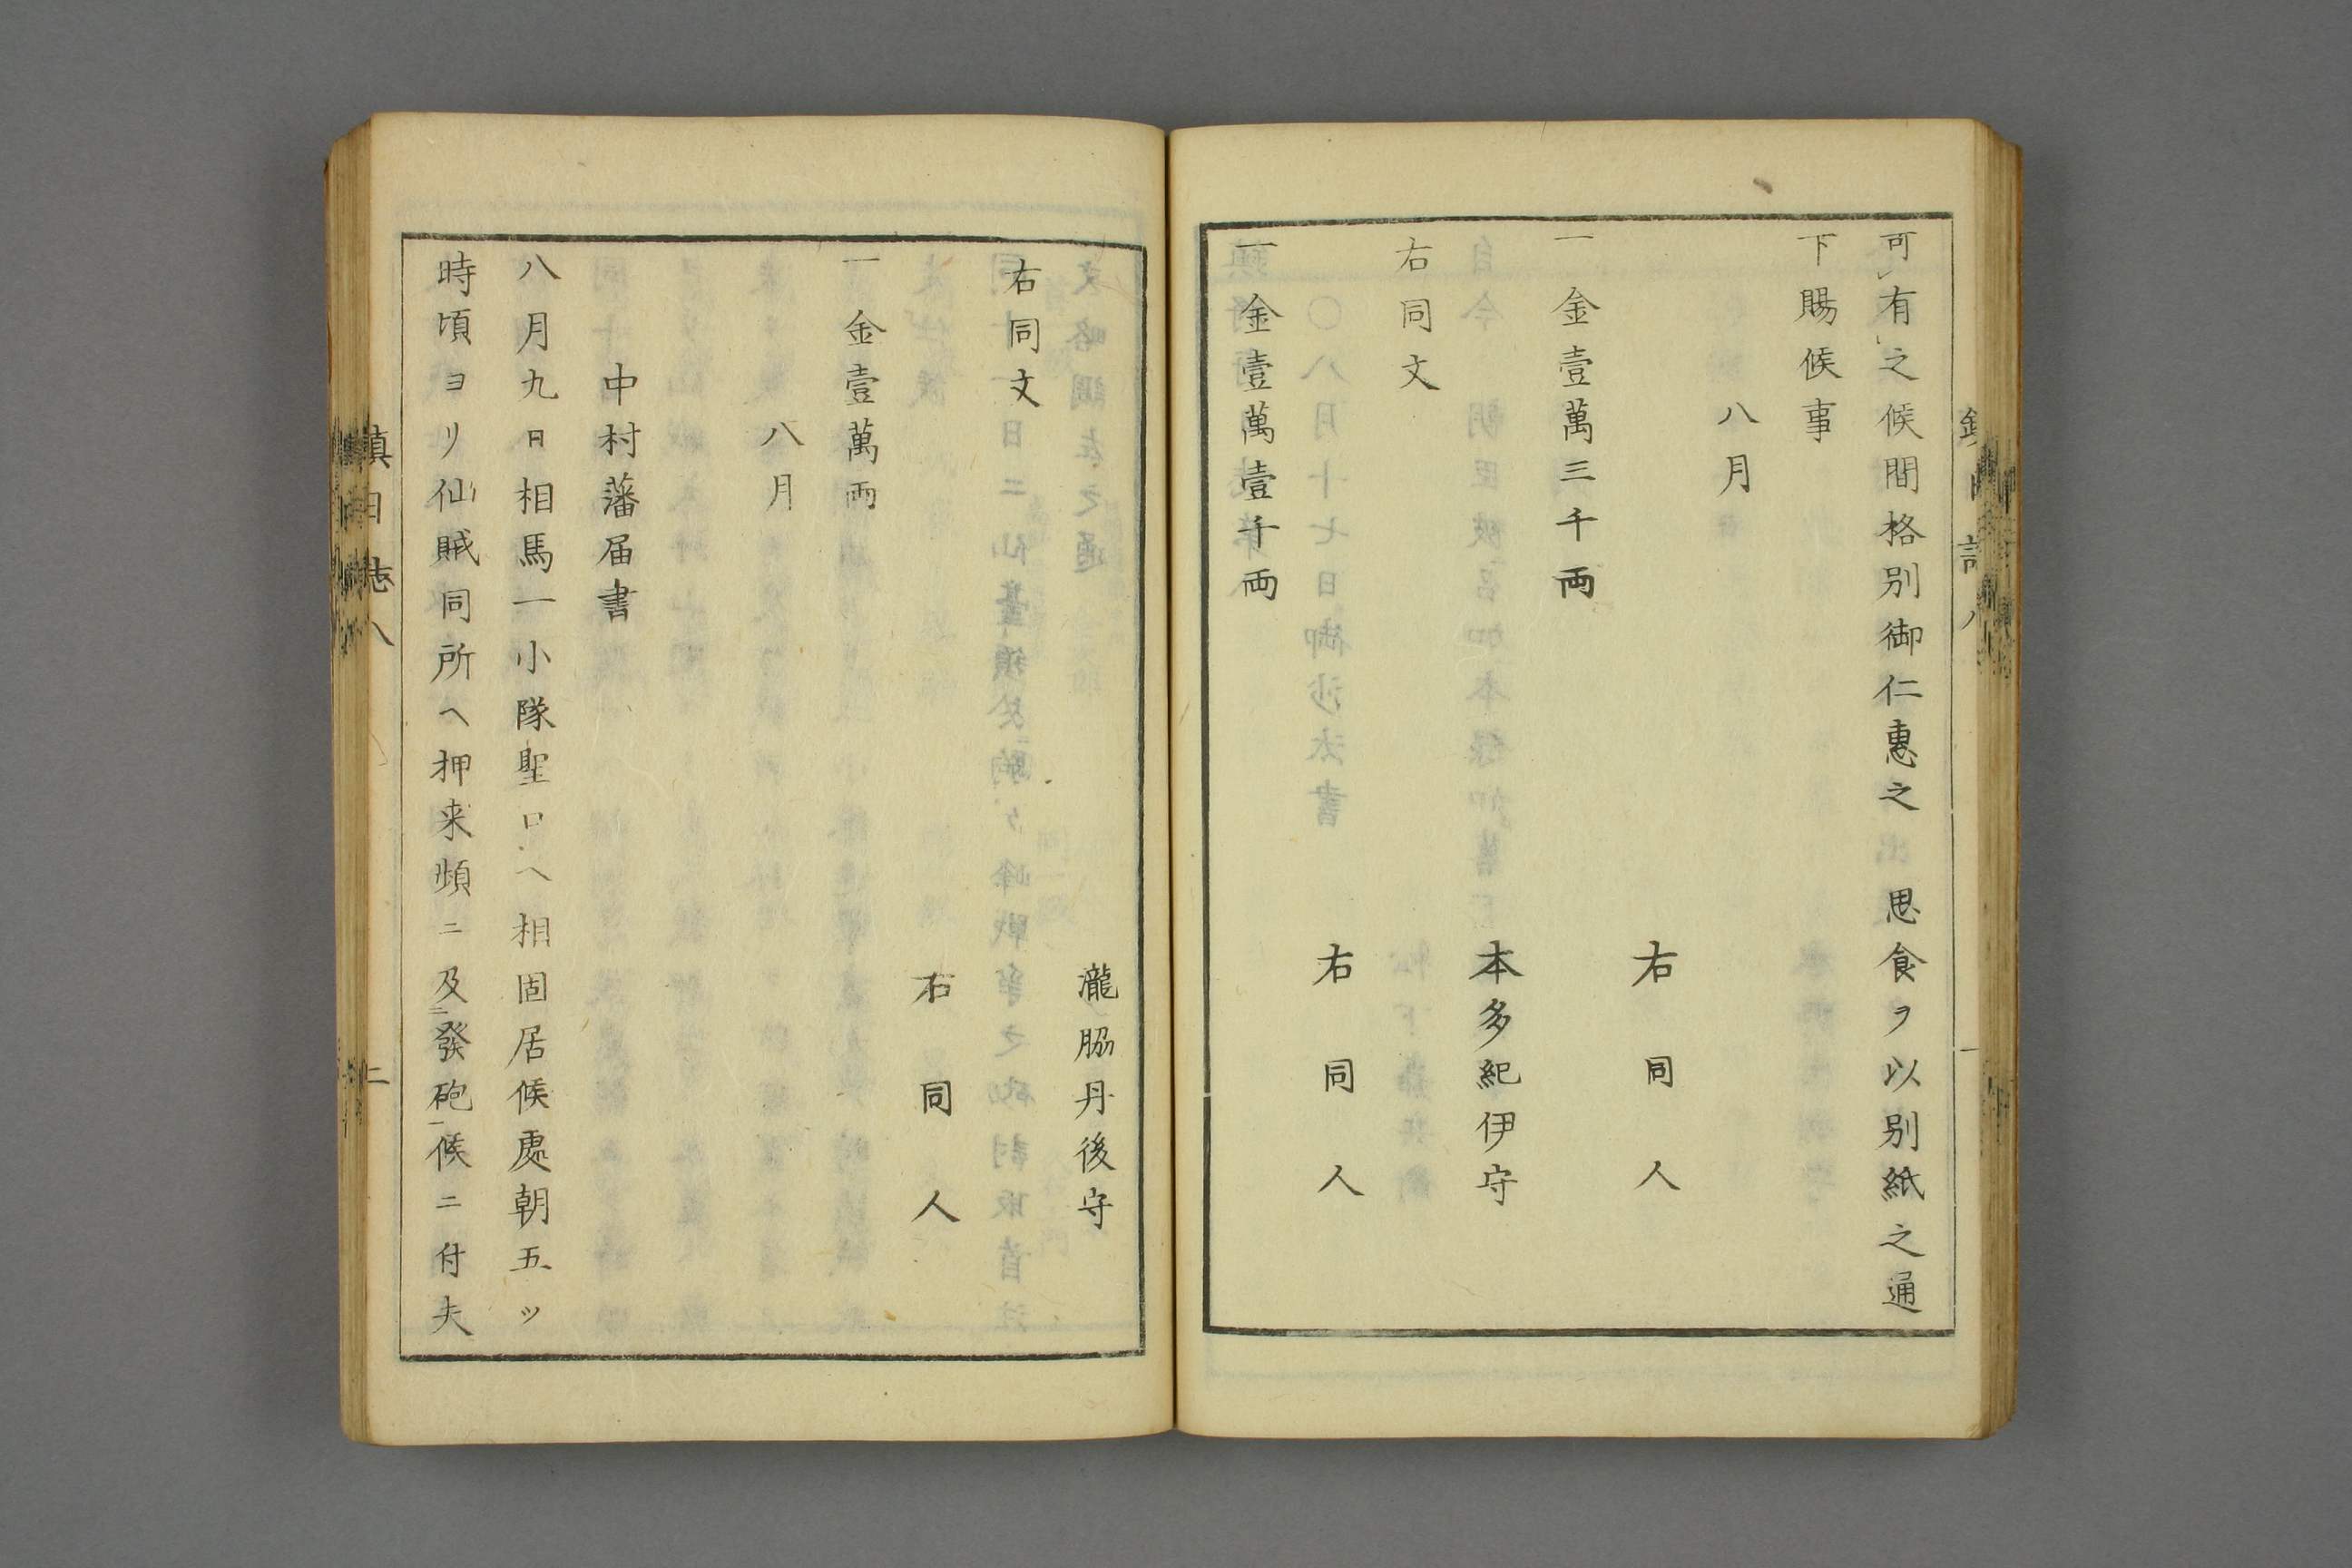 可有之候間格別御仁惠之　思食ヲ以別紙之通
下賜候事
八月
右同人
一金壹萬三千両
本多紀伊守
右同文
右同人
一金壹萬壹千両
瀧脇丹後守
右同文
右同人
一金壹萬両
八月
中村藩届書
八月九日相馬一小隊聖口ヘ相固居候處朝五ッ
時頃ヨリ仙賊同所ヘ押来頻ニ及二發砲一候ニ付夫
鎮日志八
二